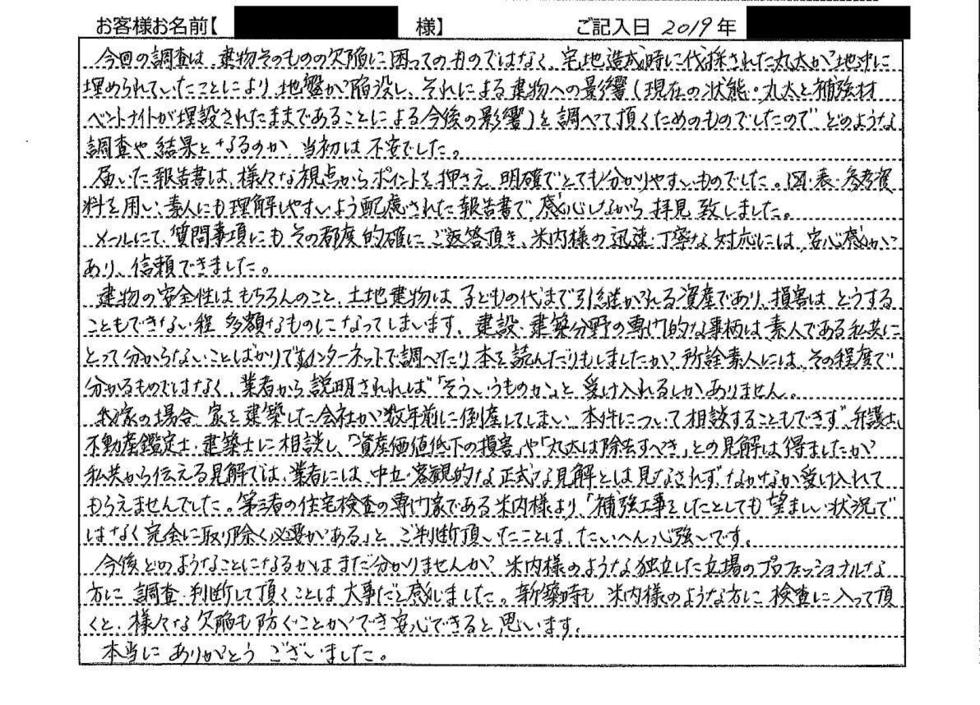 お客様お名前【 様】 ご記入日 2019年
今回の調査は、建物そのものの欠陥に困ってのものではなく、宅地造成時に伐採された丸太が地中に
埋められていたことにより、地盤が陥没し、それによる建物への影響(現在の状態・丸太と補強材
ベントナイトが埋設されたままであることによる今後の影響)を調べて頂くためのものでしたので、どのような
調査や結果となるのか、当初は不安でした。
届いた報告書は、様々な視点からポイントを押さえ、明確でとても分かりやすいものでした。図・表・参考資
料を用い、素人にも理解しやすいよう配慮された報告書で、感心しながら拝見致しました。
メールにて、質問事項にもその都度的確にご返答頂き、米内様の迅速・丁寧な対応には、安心感が
あり、信頼できました。
建物の安全性はもちろんのこと、土地建物は、子どもの代まで引き継がれる資産であり、損害は、どうする
こともできない程、多額なものになってしまいます。建設・建築分野の専門的な事柄は素人である私共に
とって分からないことばかりです。インターネットで調べたり本を読んだりもしましたが、所詮素人には、その程度で
分かるものではなく、業者から説明されれば「そういうものか」と受け入れるしかありません。
我家の場合、家を建築した会社が数年前に倒産してしまい、本件について相談することもできず、弁護士、
不動産鑑定士・建築士に相談し、「資産価値低下の損害」や「丸太は除去すべき」との見解は得ましたが、
私共から伝える見解では、業者には、中立・客観的な正式な見解とは見なされず、なかなか受け入れて
もらえませんでした。第三者の住宅検査の専門家である米内様より、「補強工事をしたとしても望ましい状況で
はなく完全に取り除く必要がある」と、ご判断頂いたことは、たいへん心強いです。
今後どのようなことになるかはまだ分かりませんが、米内様のような独立した立場のプロフェッショナルな
方に調査・判断して頂くことは大事だと感じました。新築時も米内様のような方に検査に入って頂
くと、様々な欠陥も防ぐことができ安心できると思います。
本当にありがとうございました。